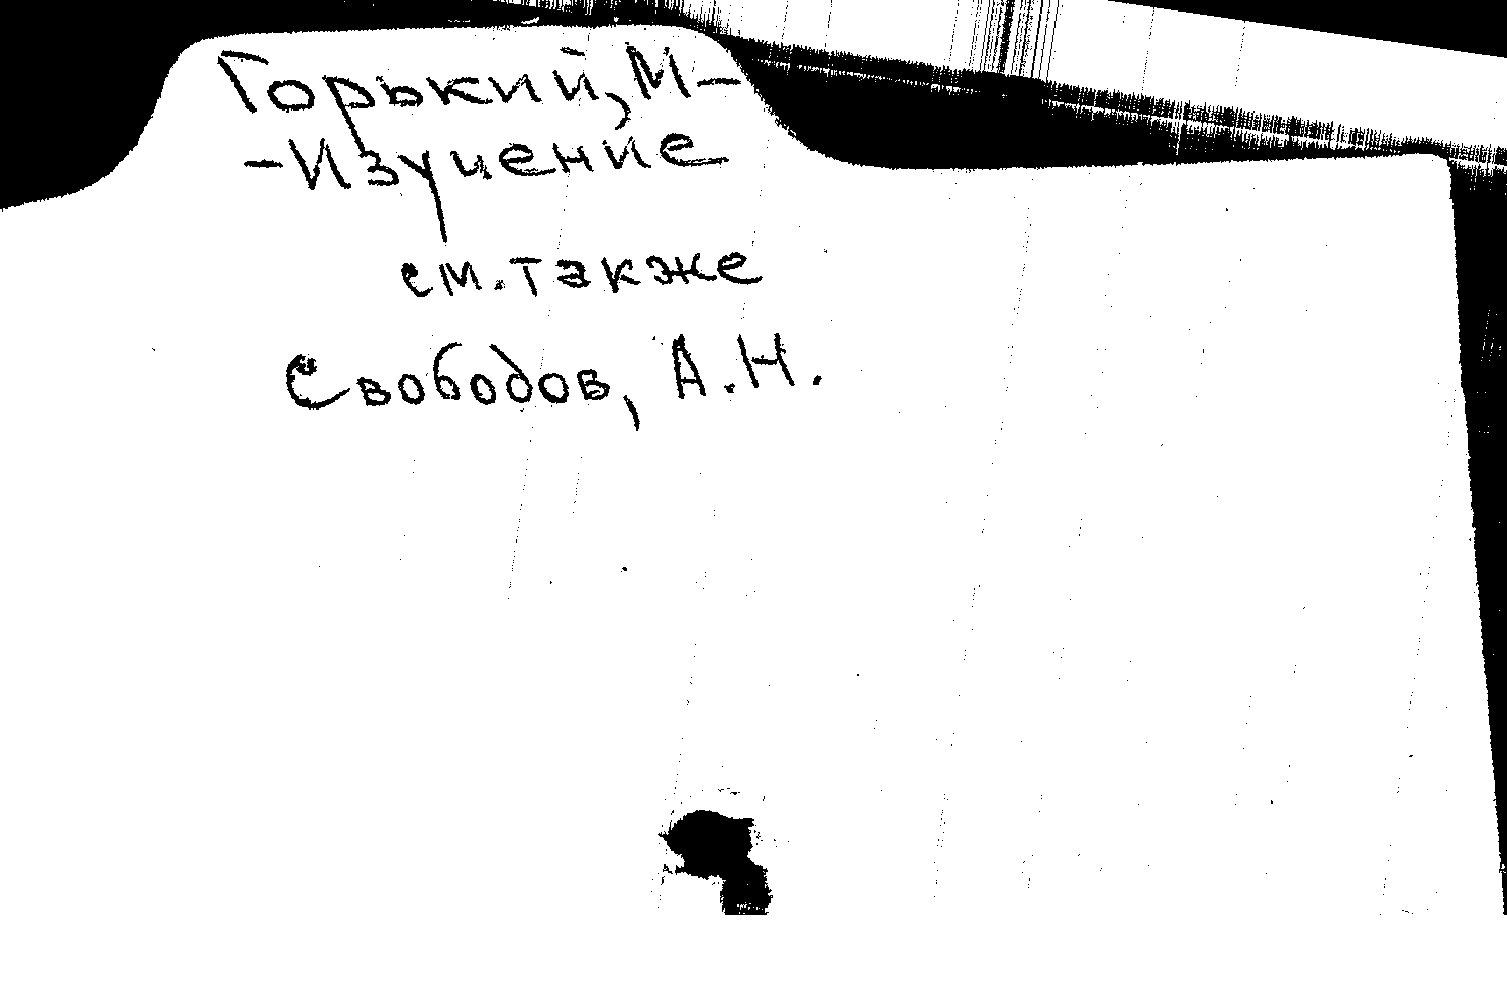 Горький, М –
– Изучение
см. также
Свободов, А.Н.